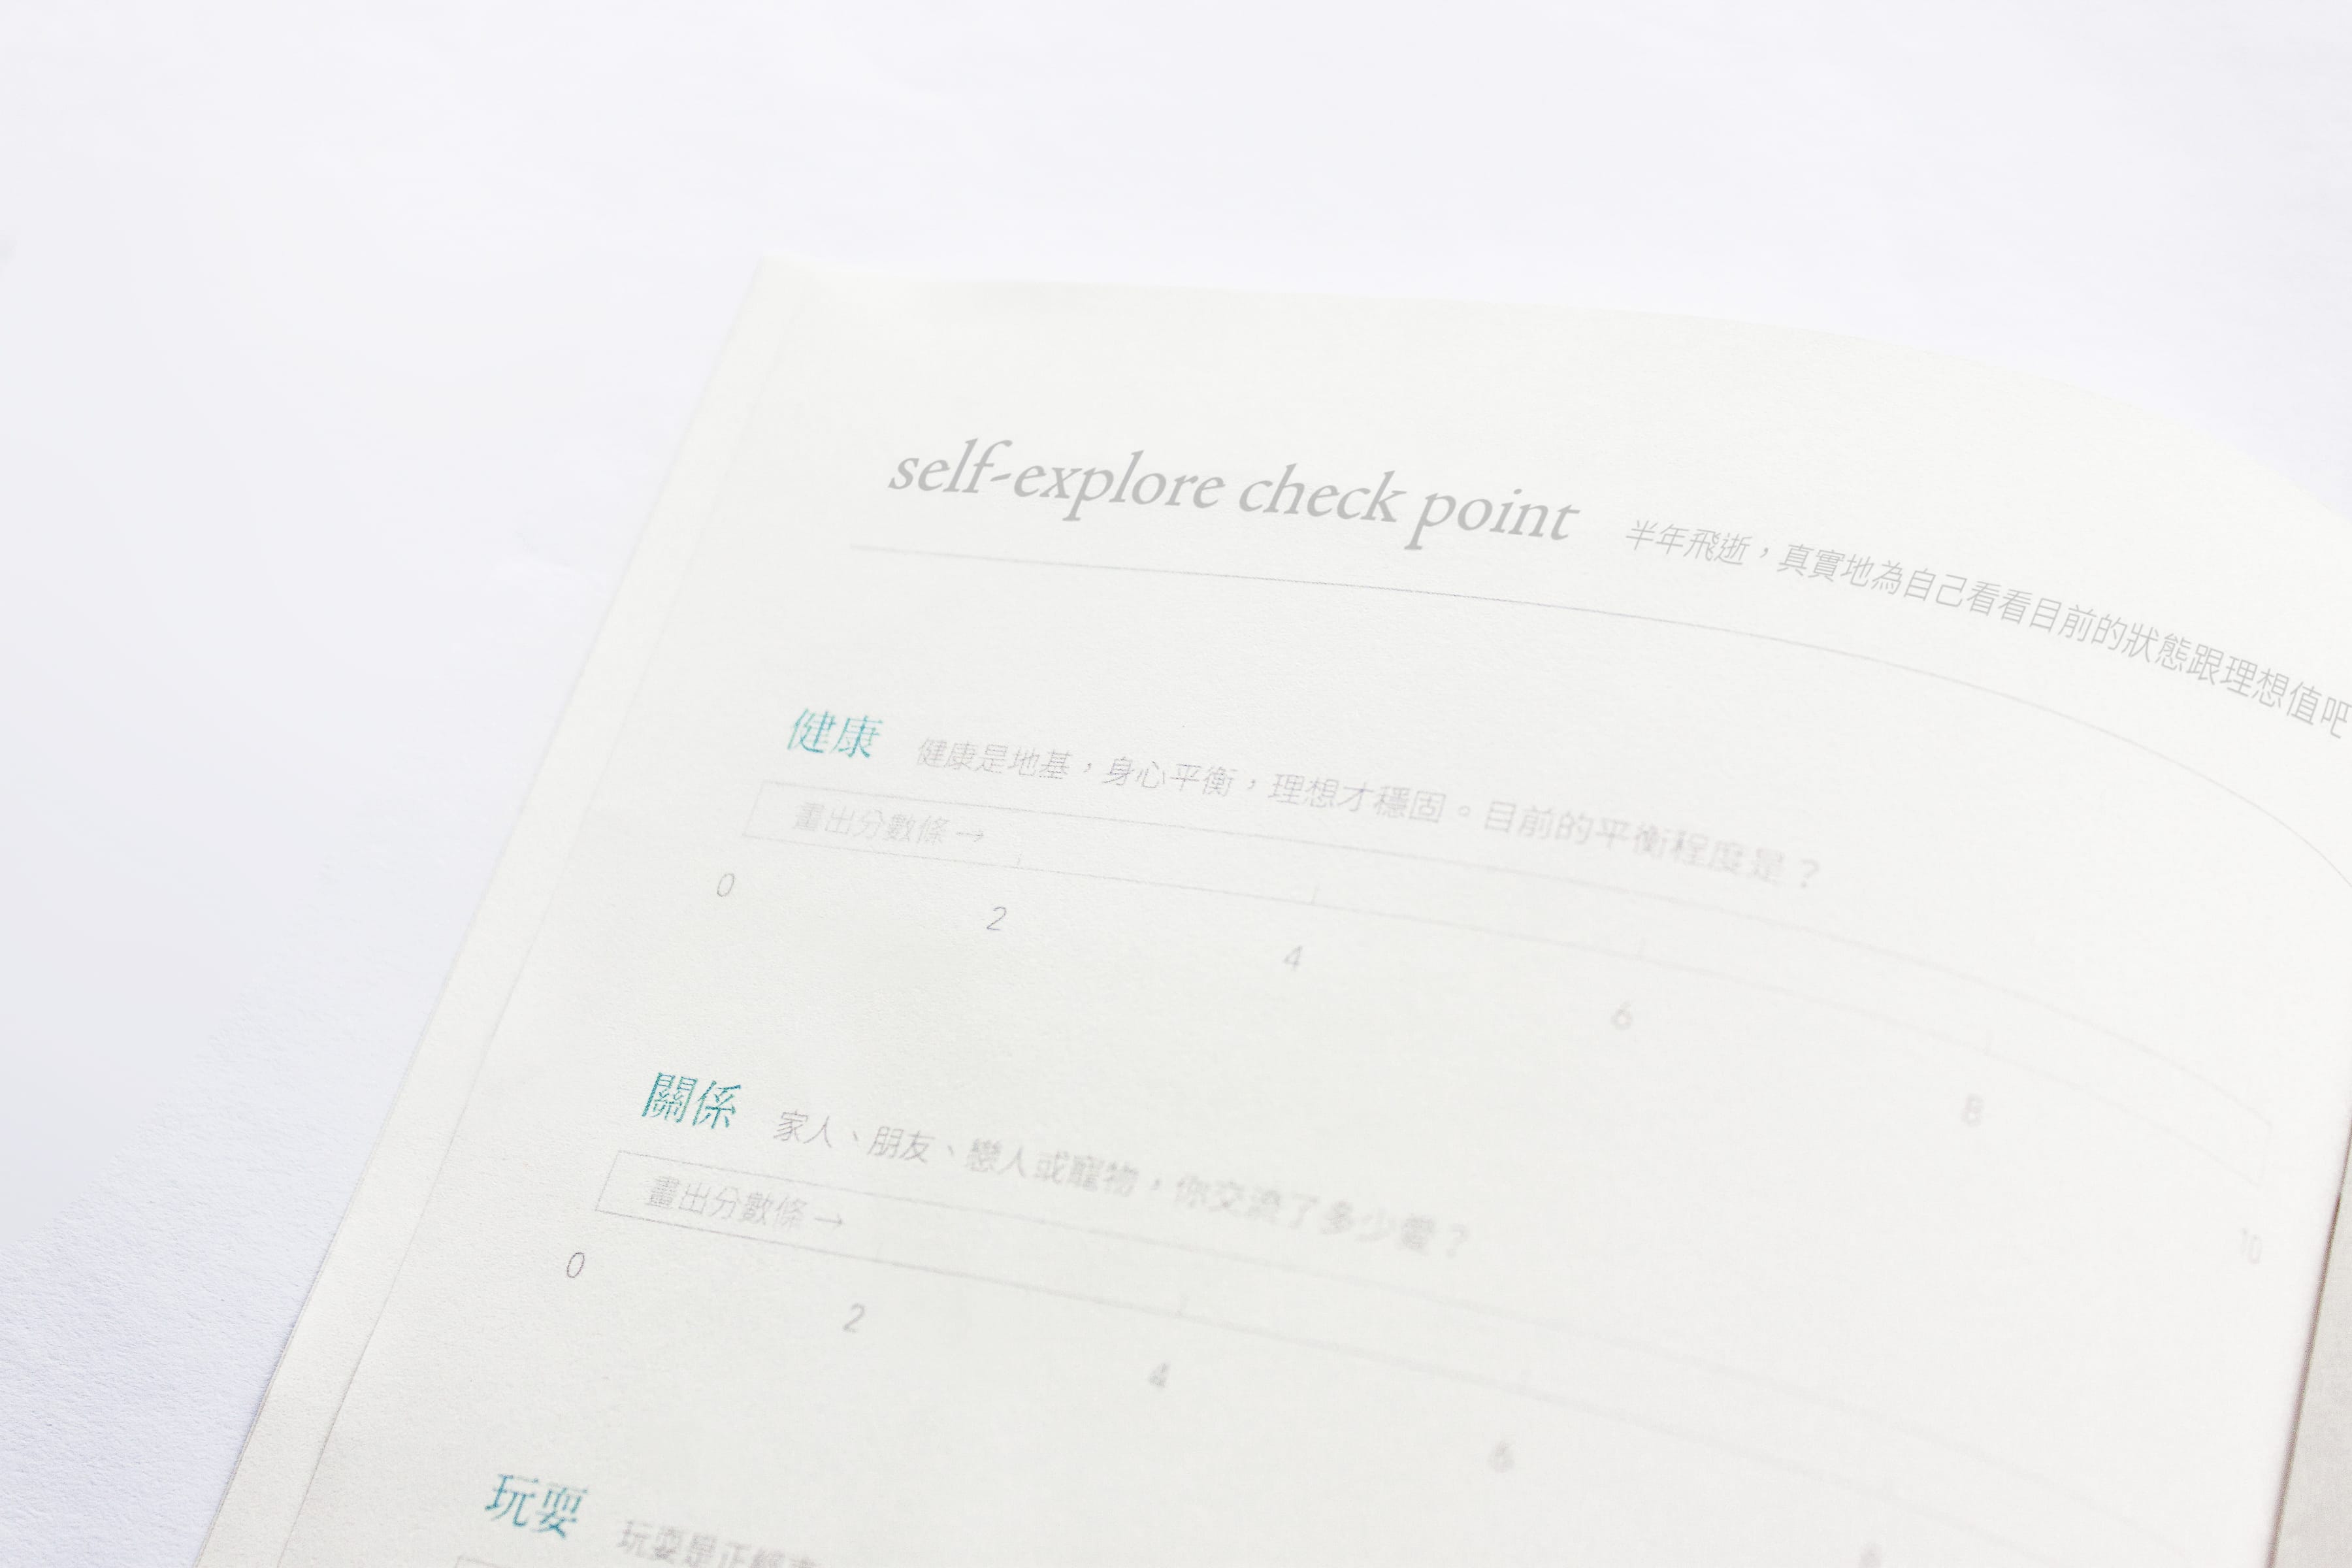 self-explore check point 半年飛逝，真實地為自己看看目前的狀態跟理想值吧
健康 健康是地基，身心平衡，理想才穩固。目前的平衡程度是？
畫出分數條→
0 2 4 6 8 10
關係 家人、朋友、戀人或寵物，你交流了多少愛？
畫出分數條→
0 2 4 6 8
玩耍 玩耍是正經事